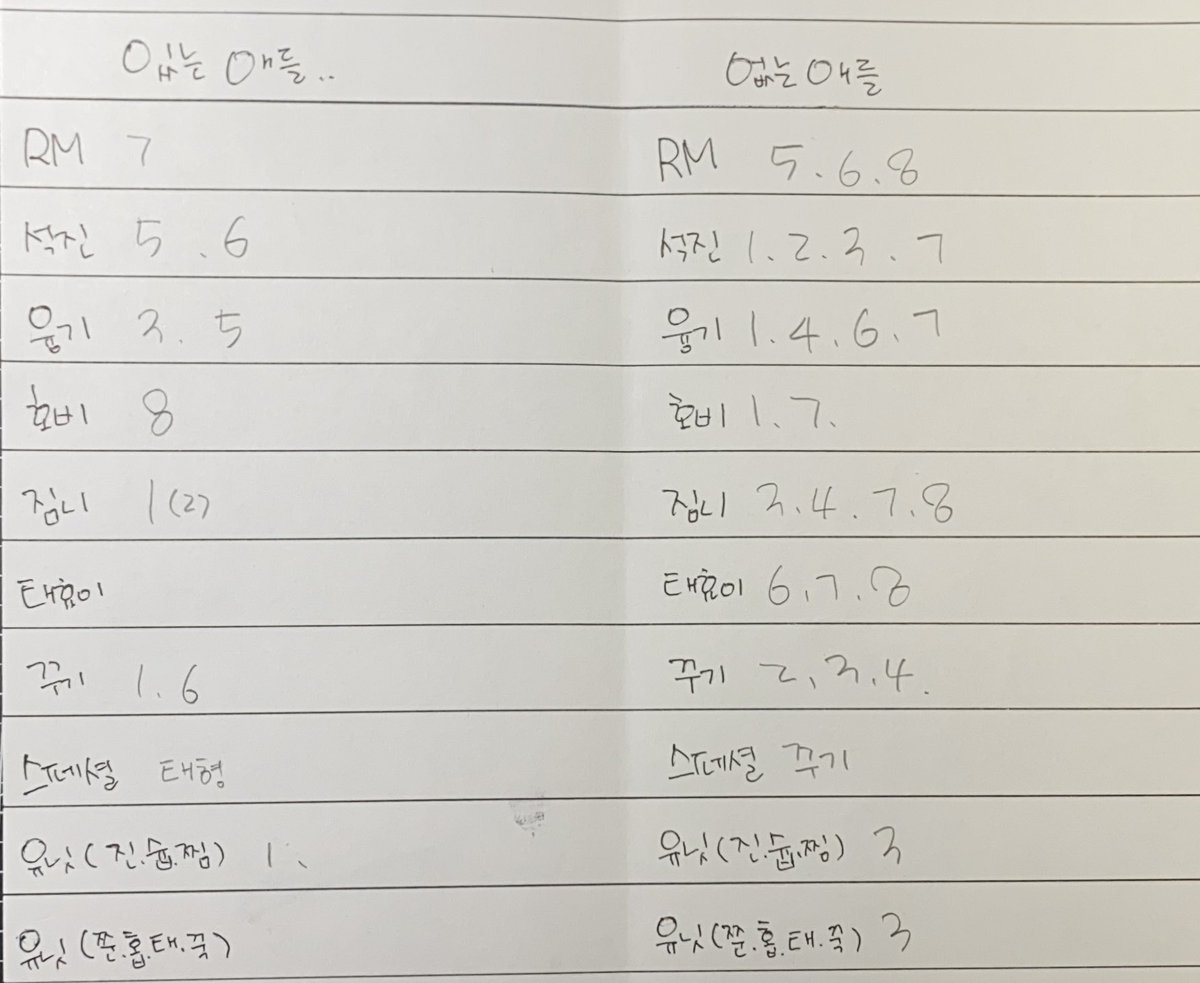 애들..
RM 7
석진 5 . 6
융기 3. 5
호비 8
짐니 1(2)
태효이
꾸기 1. 6
스페셜 태형
유닛(진.슙.찜) 1.
유닛(쭌.홉.태.꾹)
없는 애들
RM 5. 6. 8
석진 1. 2. 3. 7
융기 1. 4. 6. 7
호비 1. 7.
짐니 3. 4. 7. 8
태효이 6. 7. 8
꾸기 2, 3. 4.
스페셜 꾸기
유닛(진.슙.찜) 3
유닛(쭌.홉.태.꾹) 3